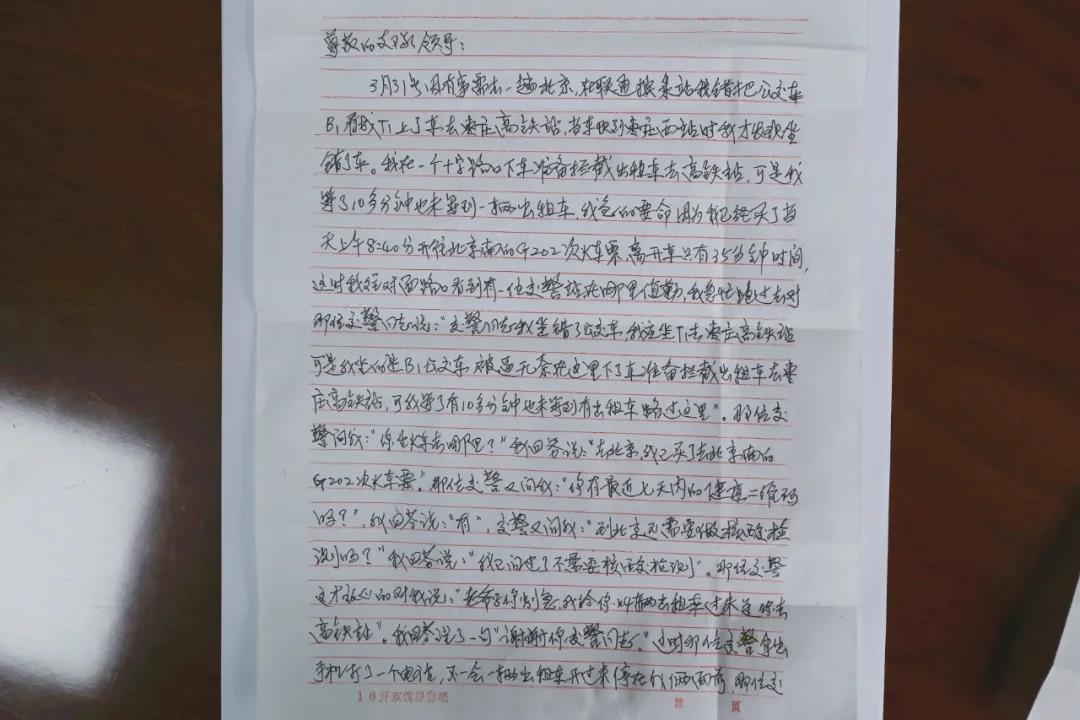 尊敬的支队领导：
3月31号因有事需去一趟北京，在联通换乘站我错把公交车
B1看成T1上了车去枣庄高铁站，当车快到枣庄西站时我才发现坐
错了车。我在一个十字路口下车准备拦截出租车去高铁站，可是我
等了10多分钟也未等到一辆出租车，我急的要命因为我已经买了当
天上午8:40分开往北京南的G202次火车票，离开车只有35分钟时间，
这时我在对面路口看到有一位交警站在哪里值勤，我急忙跑过去对
那位交警同志说：“交警同志我坐错了公交车，我应坐T1去枣庄高铁站
可是我坐的是B1公交车，被逼无奈在这里下了车准备拦截出租车去枣
庄高铁站，可我等了有10多分钟也未等到有出租车路过这里”。那位交
警问我：“你坐火车去哪里？”我回答说：“去北京，我已买了去北京南的
G202次火车票”。那位交警又问我：“你有最近七天内的健康二维码
吗？”，我回答说：“有”，交警又问我：“到北京还需要做核酸检
测吗？”我回答说：“我已问过了不需要核酸检测”。那位交警
这才放心的对我说：“老爷子你别急，我给你叫辆出租车过来送你去
高铁站”。我回答说了一句“谢谢你交警同志”。这时那位交警拿出
手机打了一个电话，不一会一辆出租车开过来停在我们俩面前，那位交
16开双线报告纸 第 页